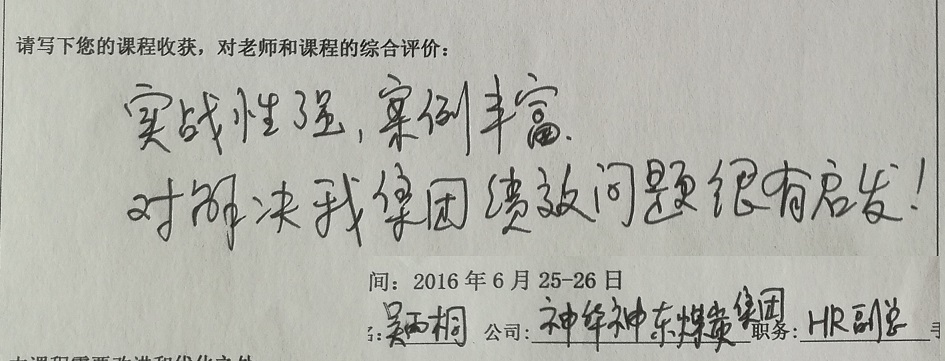 请写下您的课程收获，对老师和课程的综合评价：
实战性强，案例丰富.
对解决我集团绩效问题很有启发！
间：2016年6月25-26日
名：吴雨桐 公司：神华神东煤炭集团 职务：HR副总 手